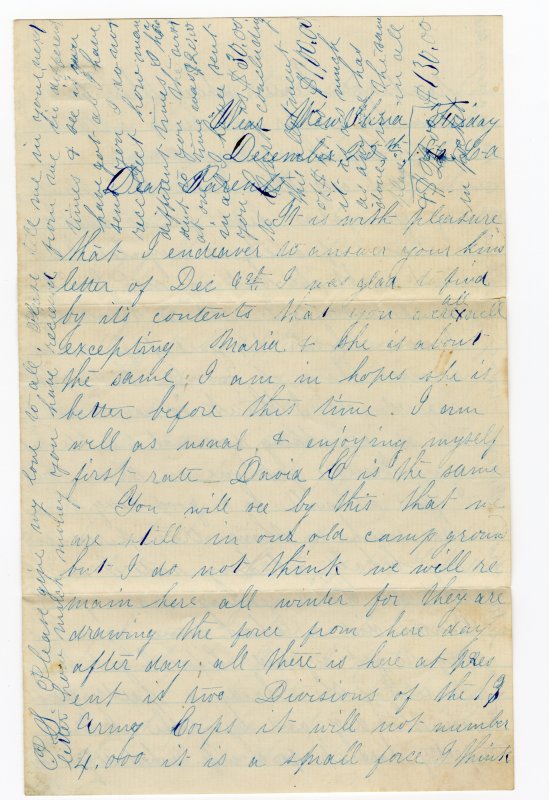 Near New Iberia Friday
December 25th La
Dear Parents
It is with pleasure
that I endeaver to answer your kind
letter of Dec 6th I was glad to find
by it's contents that you are all well
excepting Maria & she is about
the same; I am in hopes she is
better before this time. I am
well as usual, & enjoying myself
first rate – David C is the same
You will see by this that we
are still in our old camp ground
but I do not think we will re
main here all winter for they are
drawing the force from here day
after day; all there is here at pres
ent is two Divisions of the 13
Army Corps it will not number
4.000 it is a small force I think
P.S. Please give my love to all, Please tell me in your next
letter how much money you have received from me in different
times & see if you
have got all I have
sent you I do not
recolect how many
different times I have
sent to you the
at one time was $20.00
in all I have sent
you $30.00
including
this
$130.00